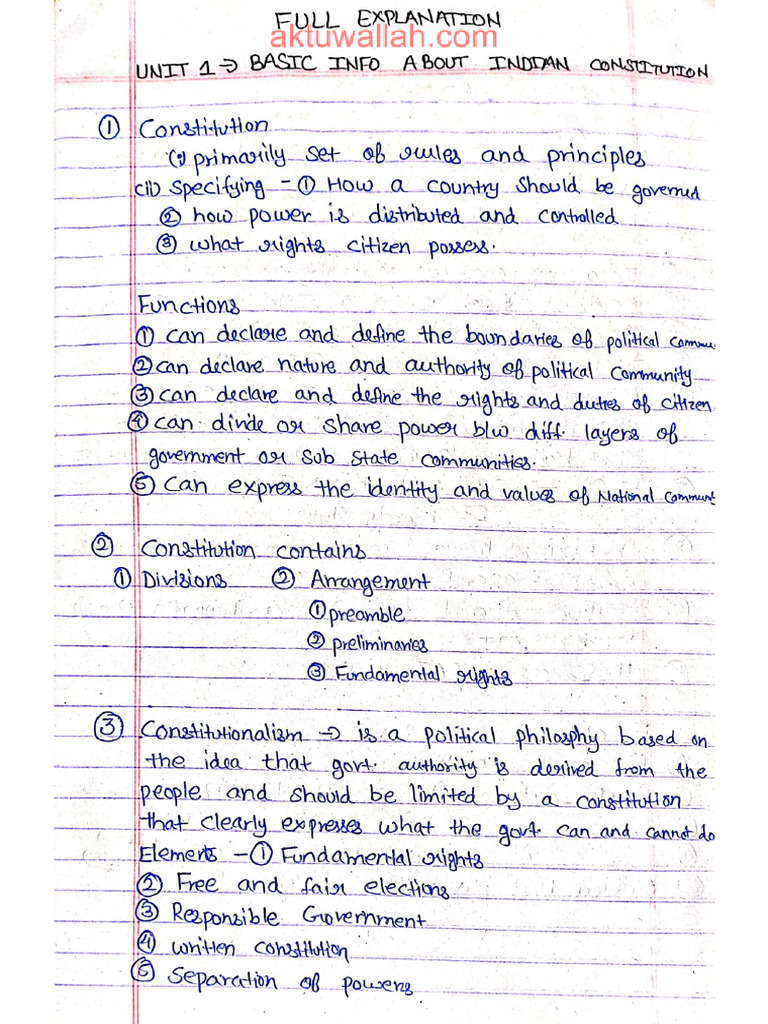 FULL EXPLANATION
aktuwallah.com
UNIT 1 → BASIC INFO ABOUT INDIAN CONSTITUTION
① Constitution
(i) primarily set of rules and principles
(ii) specifying - ① How a country should be governed
② how power is distributed and controlled
③ what rights citizen possess.
Functions
① can declare and define the boundaries of political commu
② can declare nature and authority of political community
③ can declare and define the rights and duties of citizen
④ can divide or share power b/w diff. layers of
government or sub state communities.
⑤ can express the identity and values of National commun
② Constitution contains
① Divisions ② Arrangement
① preamble
② preliminaries
③ Fundamental rights
③ Constitutionalism → is a political philosphy based on
the idea that govt. authority is derived from the
people and should be limited by a constitution
that clearly expresses what the govt. can and cannot do
Elements - ① Fundamental rights
② Free and fair elections
③ Responsible Government
④ written constitution
⑤ Separation of powers